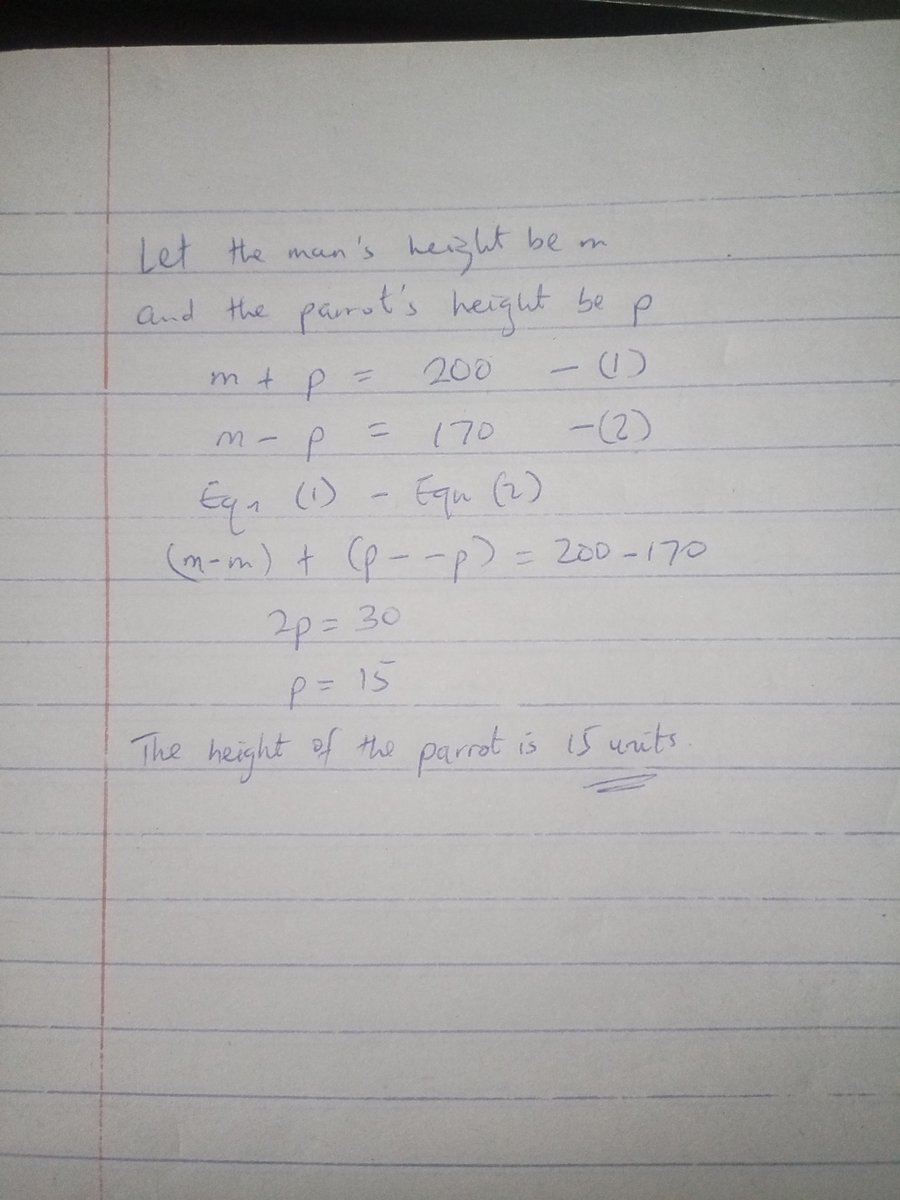 Let the man's height be m
and the parrot's height be p
m + p = 200 - (1)
m - p = 170 - (2)
Eqn (1) - Eqn (2)
(m-m) + (p--p) = 200-170
2p = 30
p = 15
The height of the parrot is 15 units.